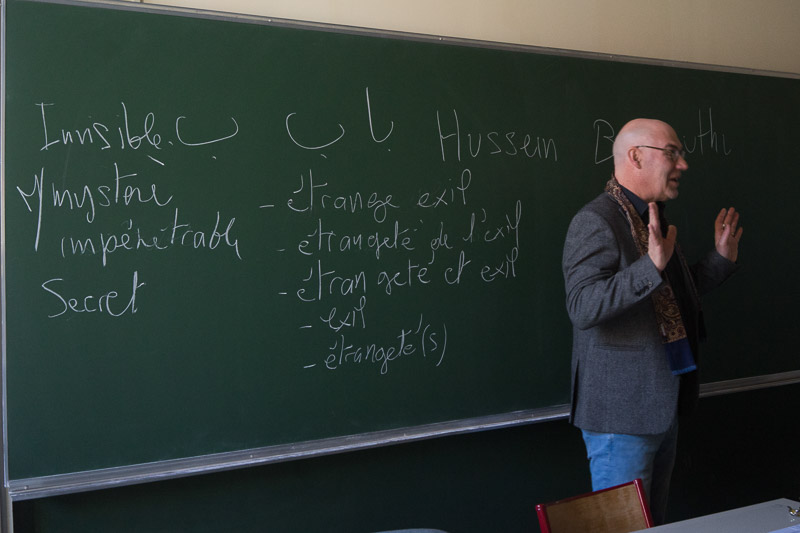 Invisible. ب
mystère
impénétrable
Secret
باب
Hussein
- étrange exil
- étrangeté de l'exil
- étrangeté et exil
- exil
- étrangeté(s)